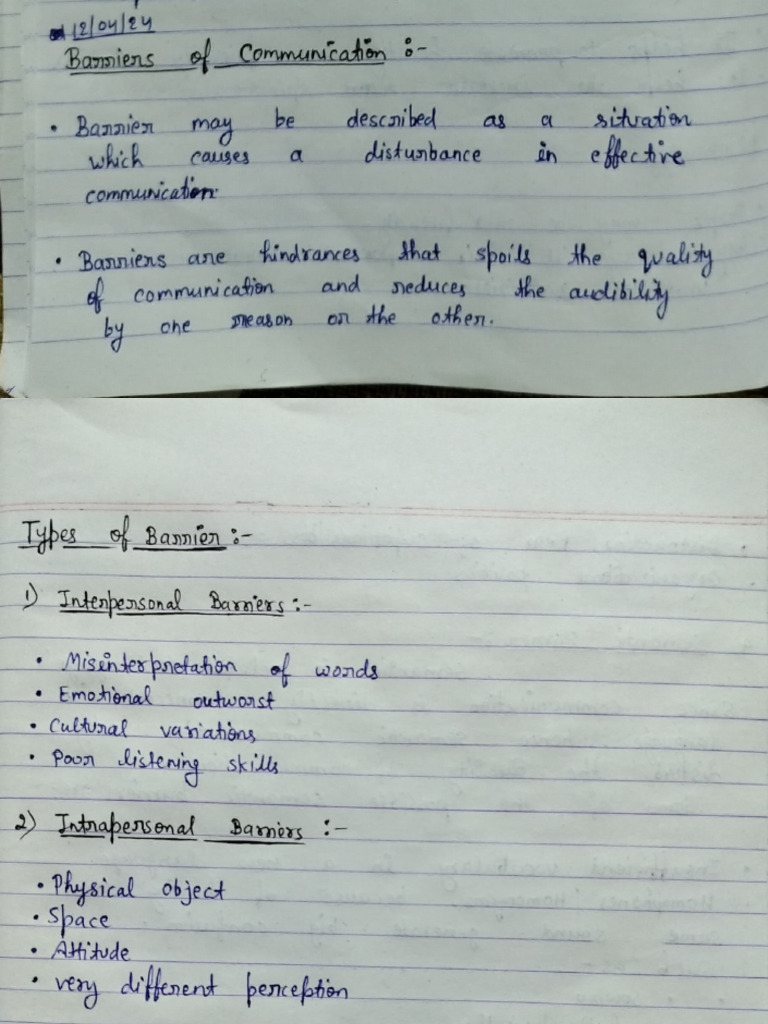 12/04/24
Barriers of Communication :-
• Barrier may be described as a situation
which causes a disturbance in effective
communication.
• Barriers are hindrances that spoils the quality
of communication and reduces the audibility
by one reason or the other.
Types of Barrier :-
1) Interpersonal Barriers :-
• Misinterpretation of words
• Emotional outworst
• Cultural variations
• Poor listening skills
2) Intrapersonal Barriers :-
• Physical object
• Space
• Attitude
• very different perception